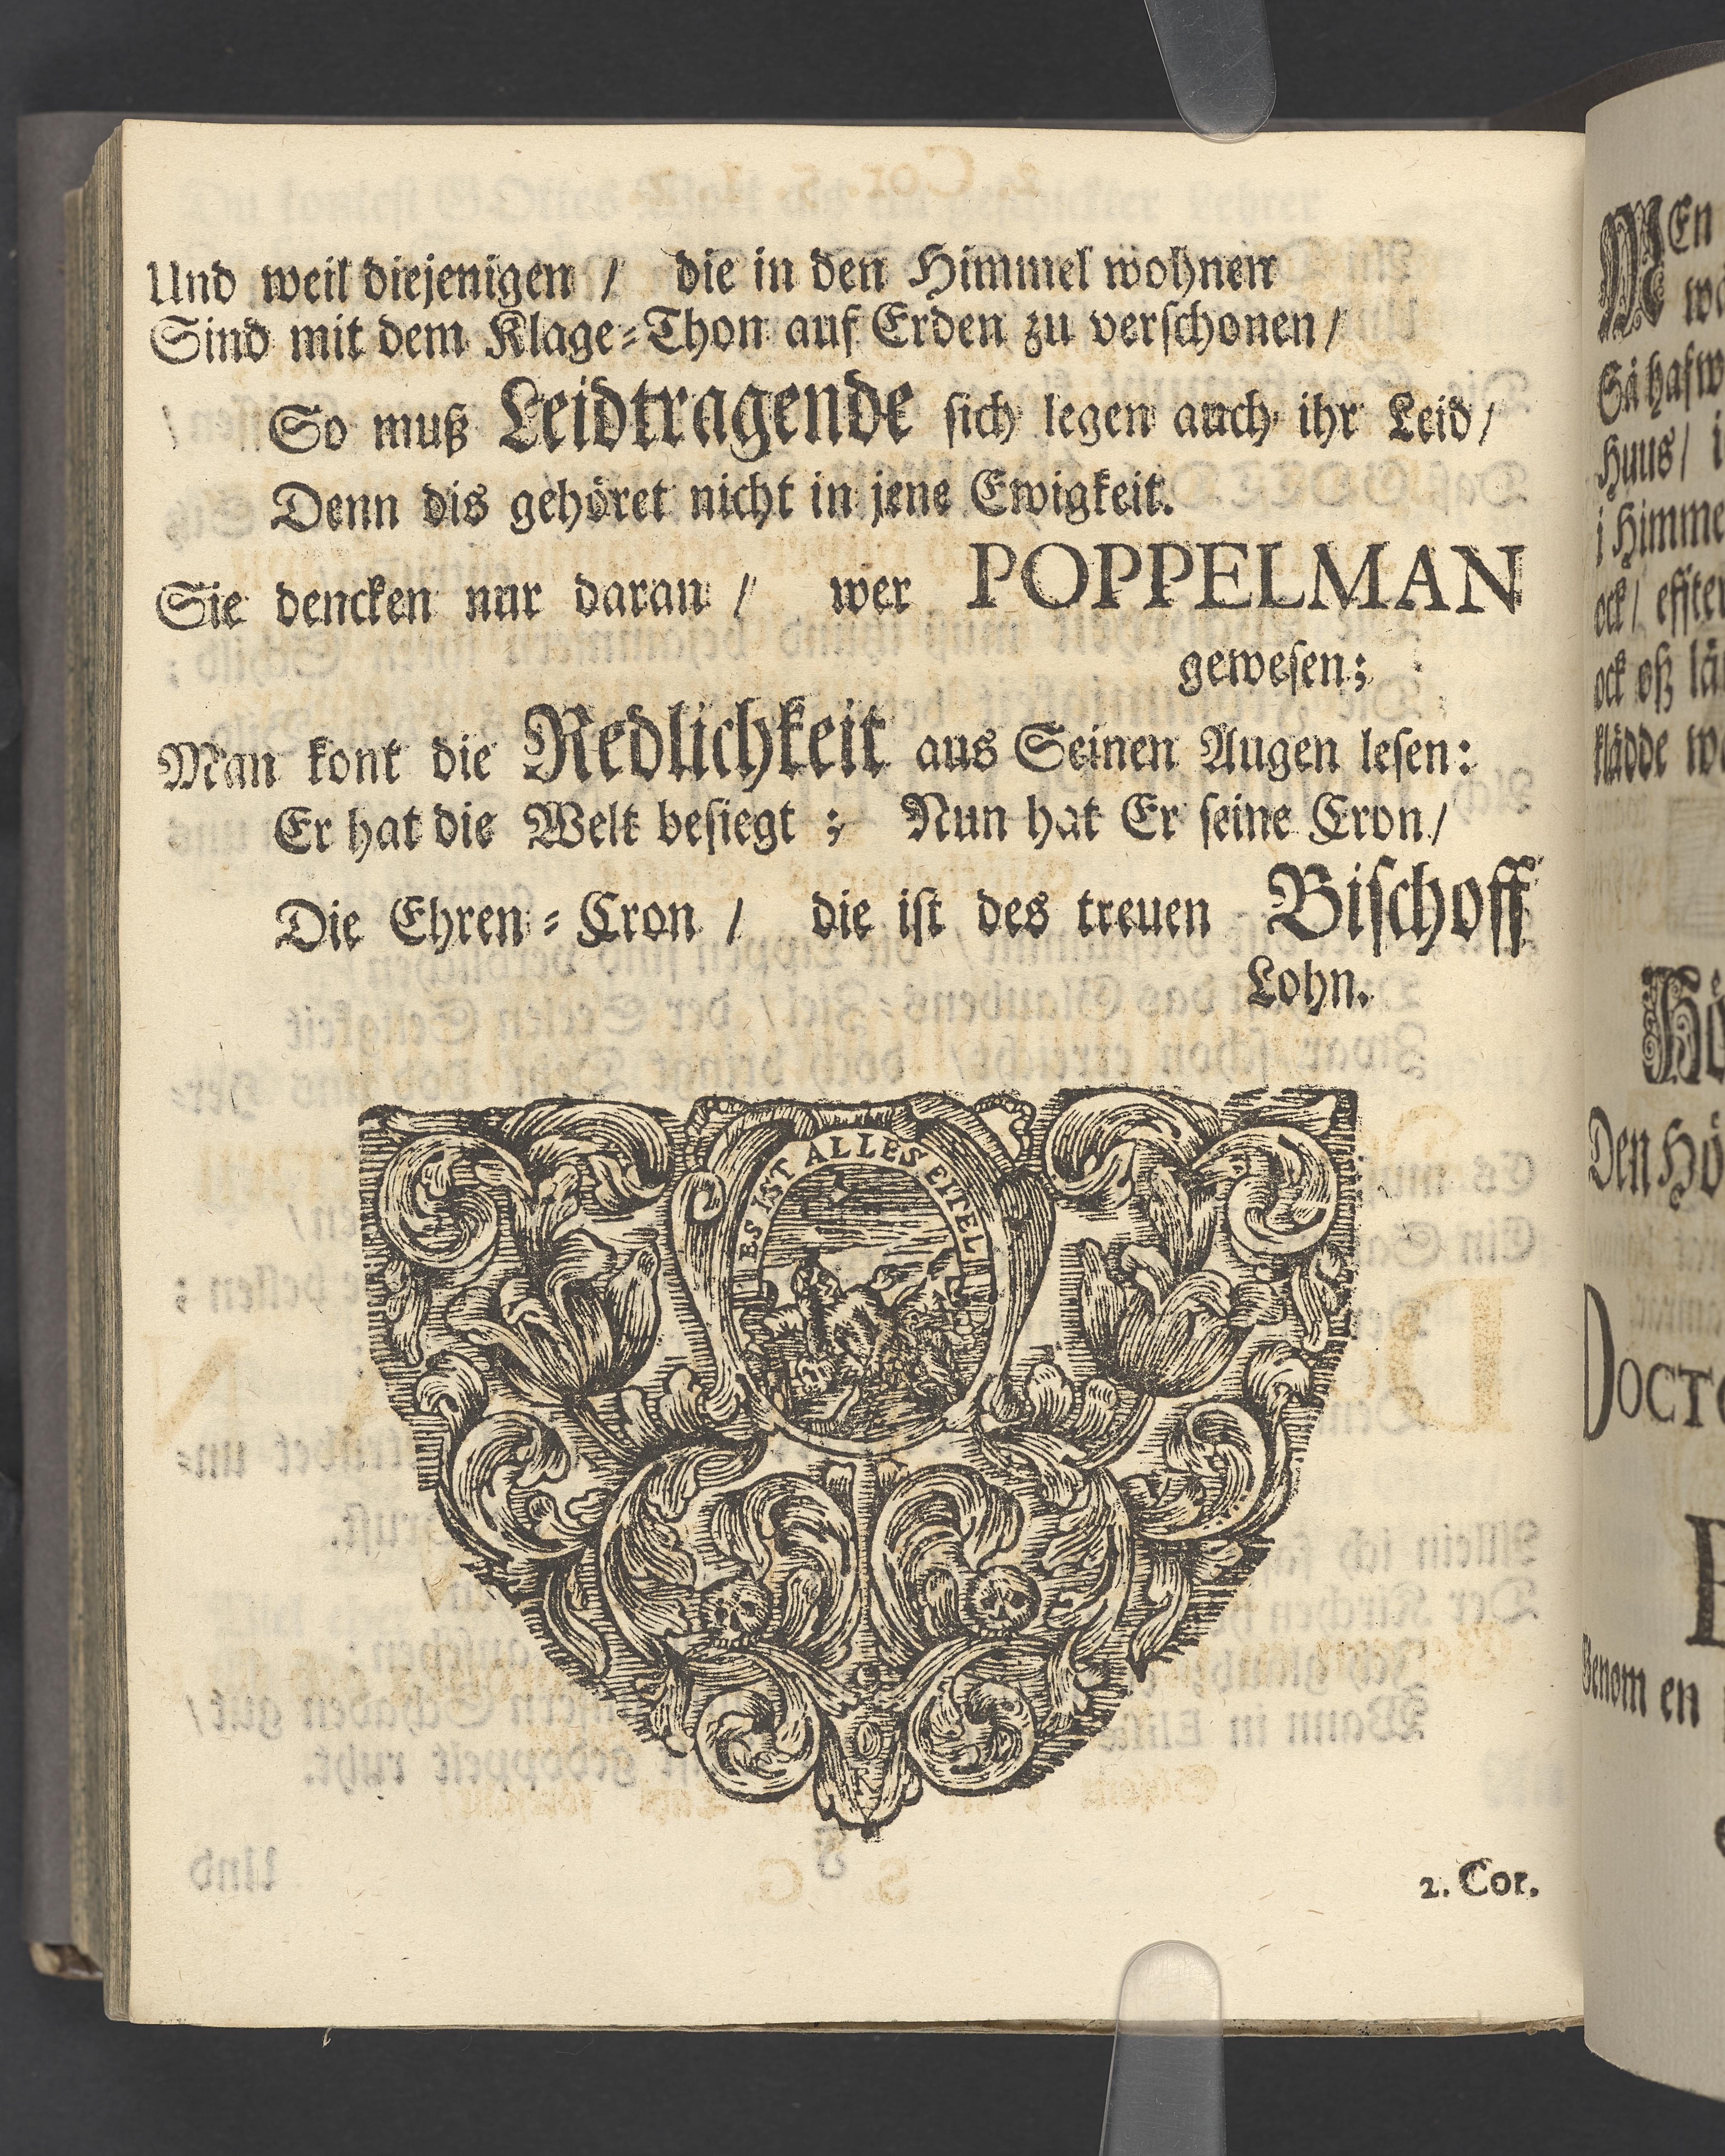 Und weil diejenigen / die in den Himmel wohnen
Sind mit dem Klage=Thon auf Erden zu verschonen /
So muß Leidtragende sich legen auch ihr Leid /
Denn dis gehöret nicht in jene Ewigkeit.
Sie dencken nur daran / wer POPPELMAN
gewesen;
Man kont die Redlichkeit aus Seinen Augen lesen:
Er hat die Welt besiegt ; Nun hat Er seine Cron /
Die Ehren=Cron / die ist des treuen Bischoff
Lohn.
ES IST ALLES EITEL
2. Cor.
MEn
Så hafw
Huus / i
i Himme
ock /
ock oß
klädde
Den Hö
DOCTO
en